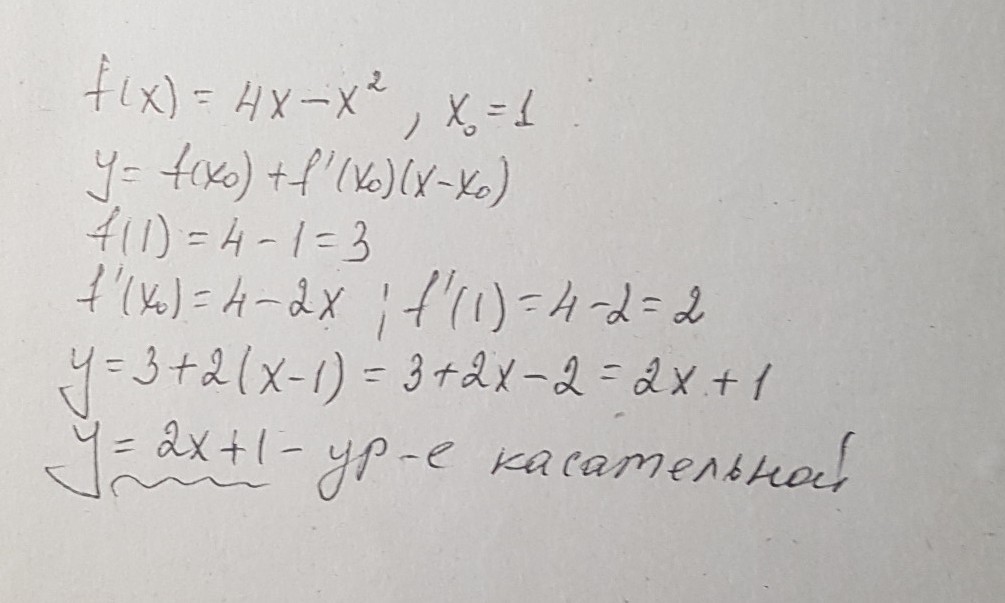 f(x) = 4x - x², x₀ = 1
y = f(x₀) + f'(x₀)(x - x₀)
f(1) = 4 - 1 = 3
f'(x₀) = 4 - 2x ; f'(1) = 4 - 2 = 2
y = 3 + 2(x - 1) = 3 + 2x - 2 = 2x + 1
y = 2x + 1 - ур-е касательной